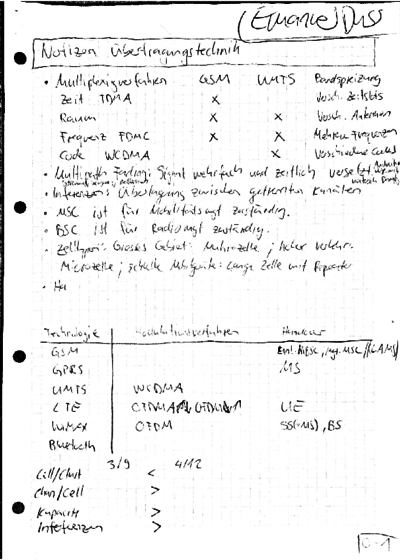 (Emanuel Duss
Notizen Übertragungstechnik
• Multiplexingverfahren GSM UMTS Bandspreizung
Zeit TDMA x versch. Zeitslots
Raum x x versch. Antennen
Frequenz FDMC x x Mehrere Frequenzen
Code WCDMA x Verschiedene Codes
• Multipath Fading: Signal mehrfach und zeitlich versetzt
• Inferenzen: Überlagerung zwischen getrennten Kanälen
• MSC ist für Mobilitätsmgt zuständig.
• BSC ist für Radiomgt zuständig.
• Zelltypen: Grosses Gebiet: Makrozelle ; hoher Verkehr:
Microzelle ; schnelle Mobilgeräte: Lange Zelle mit Repeater
• Ha
Technologie Modulationsverfahren Hardware
GSM MSC
GPRS MS
UMTS WCDMA
LTE UE
WiMAX OFDM SS(=MS), BS
Bluetooth
3/9 4/12
Cell/Clust <
Chan/Cell >
Kapazität >
Inteferenzen >
0-1